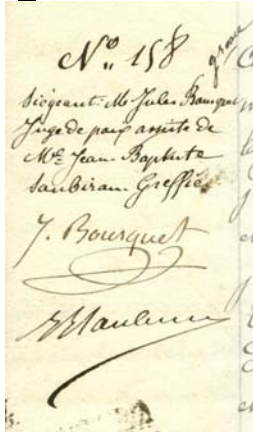 N.º 158
siégeant: Mr Jules Bourquet
Juge de paix assisté de
Me. Jean Baptiste
Saubiran Greffier
J. Bourquet